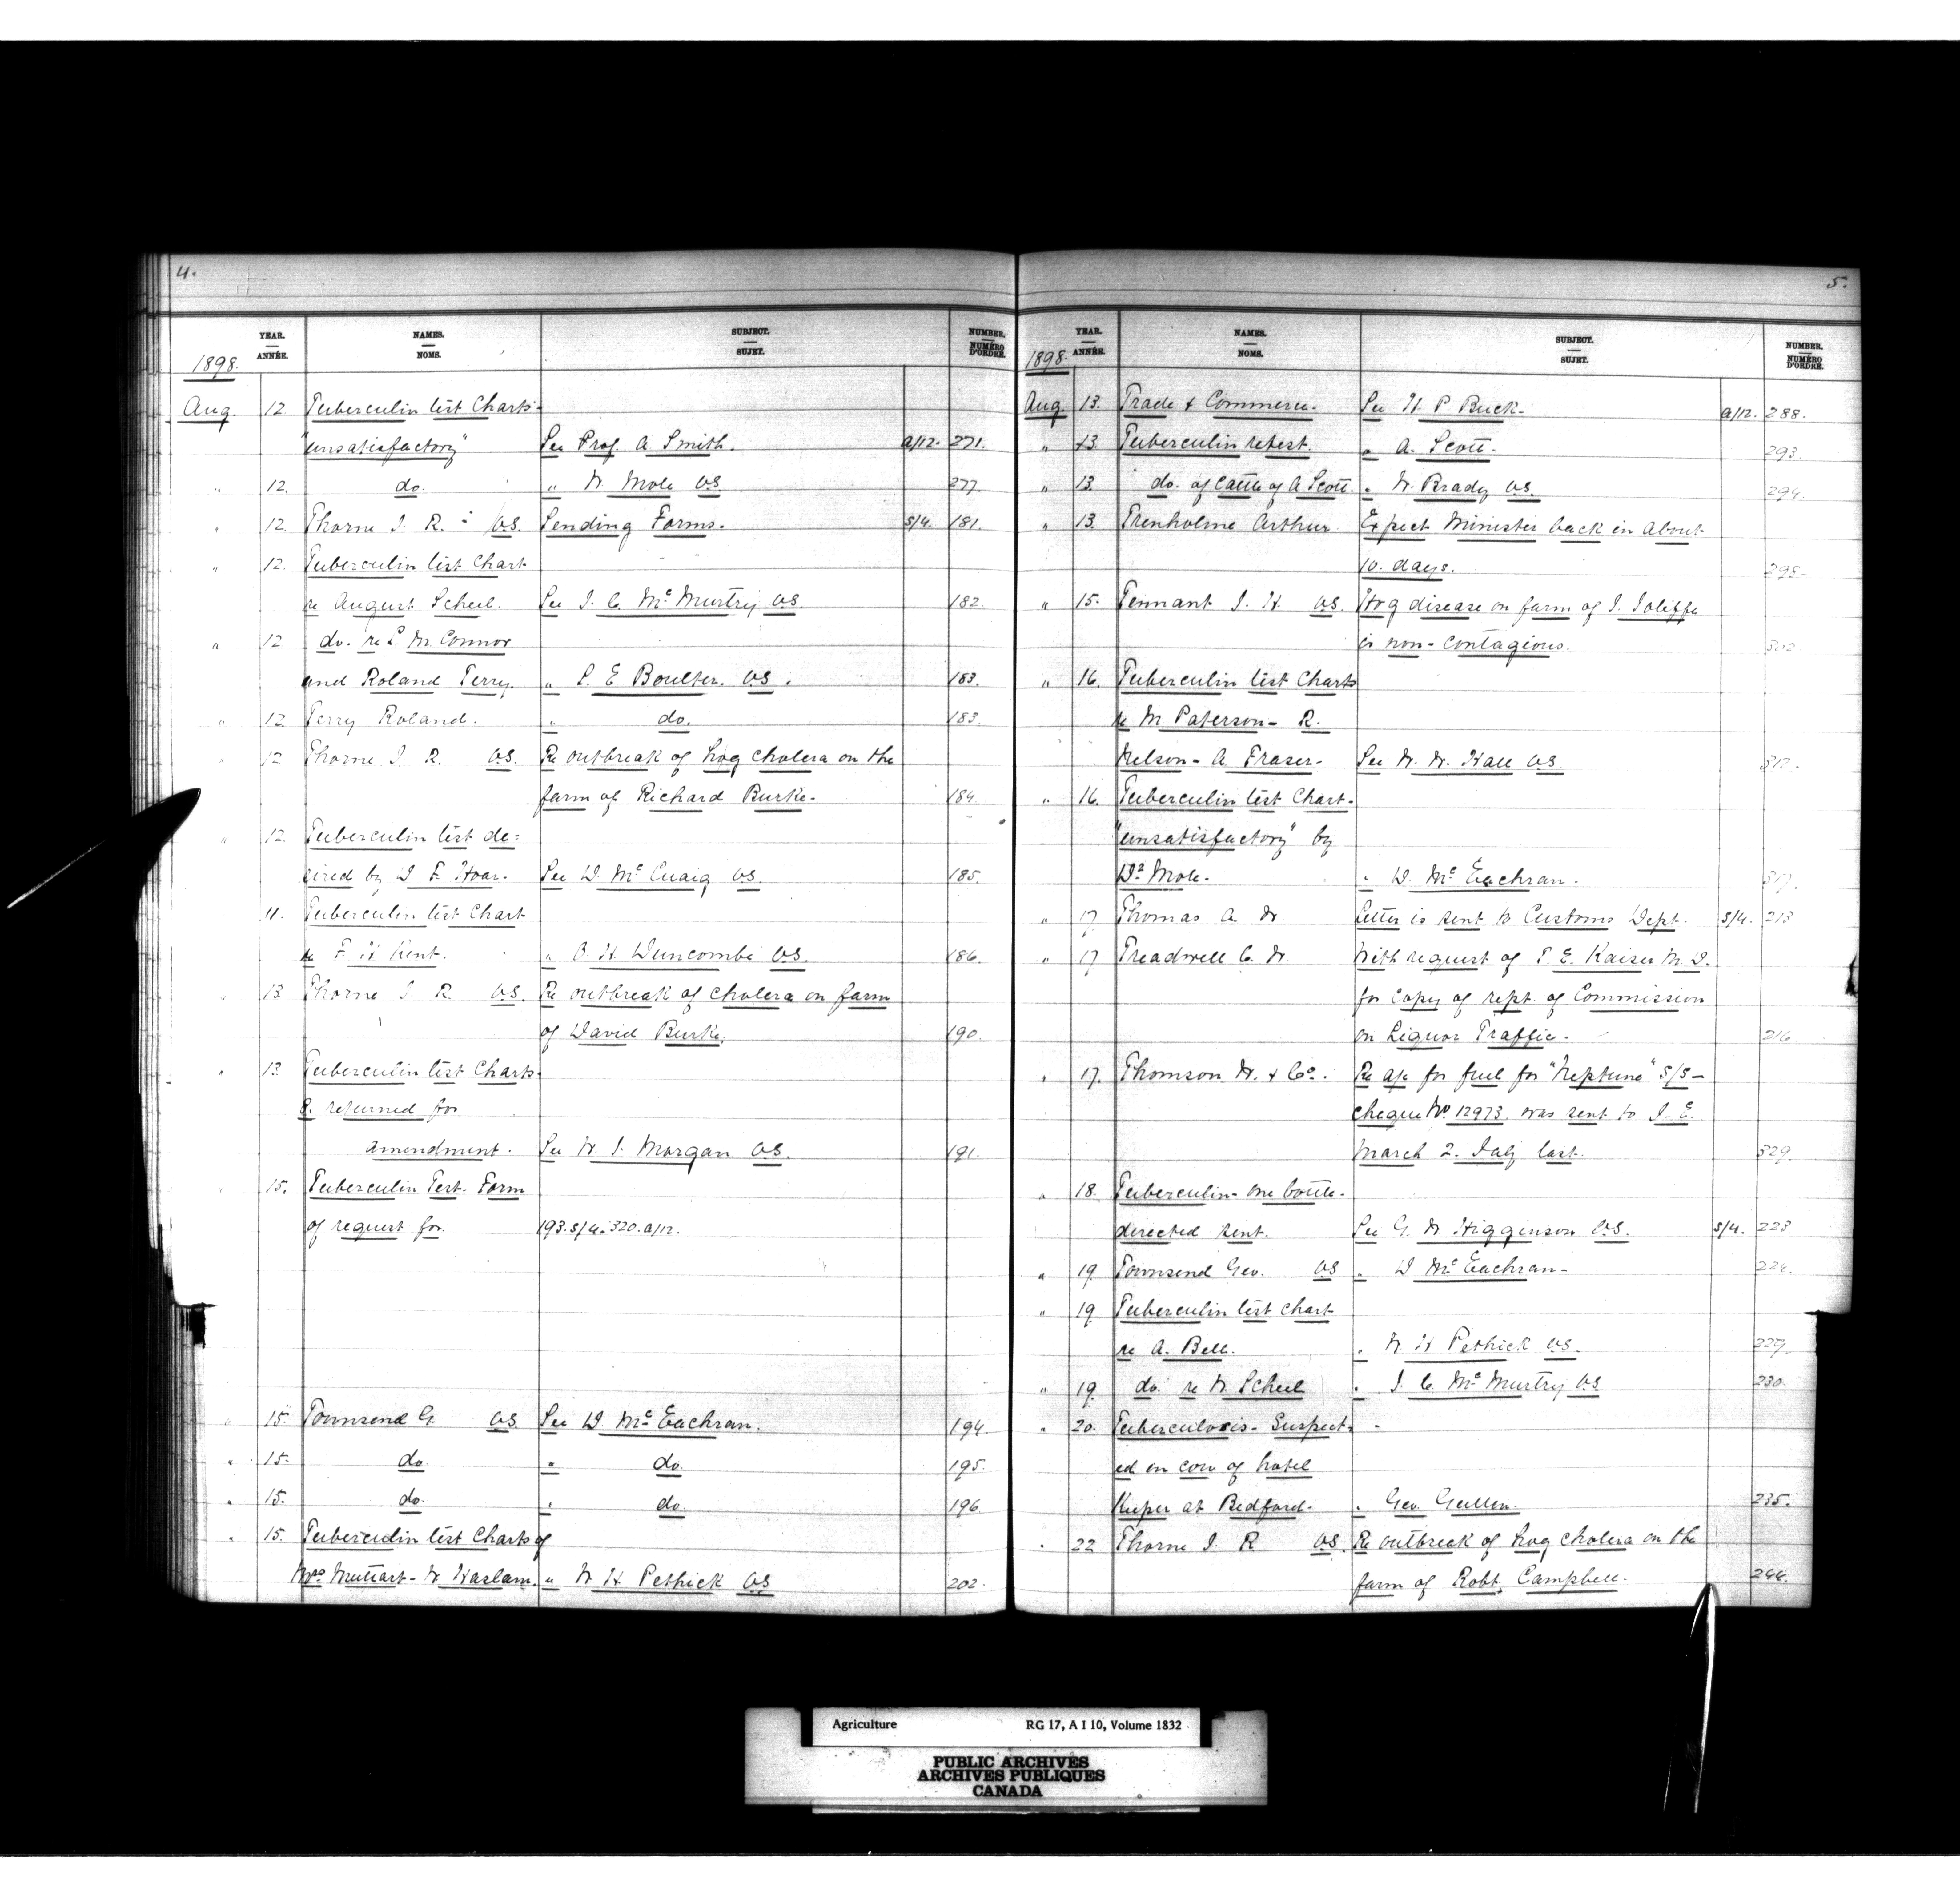 4.
YEAR. NAMES. SUBJECT. NUMBER.
ANNÉE. NOMS. SUJET. NUMÉRO D'ORDRE.
1898.
Aug. 12. Tuberculin test Charts-
"unsatisfactory" See Prof. A. Smith. a/12. 271.
" 12. do. " W. Mole V.S. 277.
" 12. Thorne J. R. - V.S. Sending Forms. S/4. 181.
" 12. Tuberculin test Chart
re August Scheel. See J. C. McMurtry V.S. 182.
" 12 do. re M. Connor
and Roland Terry. " S. E. Boulter. V.S. 183.
" 12 Terry Roland. " do. 183.
" 12 Thorne J. R. V.S. Re outbreak of hog cholera on the
farm of Richard Burke. 184.
" 12. Tuberculin test de=
sired by D F. Hoar. See D. McCuaig V.S. 185.
11. Tuberculin test Chart
re F. H Kent. " O. H. Duncombe V.S. 186.
" 13. Thorne J R. V.S. Re outbreak of cholera on farm
of David Burke. 190.
" 13. Tuberculin test Charts
returned for
amendment. See W. J. Morgan V.S. 191.
" 15. Tuberculin Test- Form
of request for. 193. S/4. 320. a/12.
" 15. Townsend G. V.S See D. McEachran. 194.
" 15. do. " do. 195.
" 15. do. " do. 196.
" 15. Tuberculin test Charts of
Mrs Muttart- W Haslam. " W H. Pethick V.S 202.
5.
YEAR. NAMES. SUBJECT. NUMBER.
ANNÉE. NOMS. SUJET. NUMÉRO D'ORDRE.
1898.
Aug 13. Trade & Commerce. See H. P Buck. a/12. 288.
" 13. Tuberculin retest. " A. Scott. 293.
" 13. do. of Cattle of A Scott. " W. Brady V.S. 294.
" 13. Trenholme Arthur Expect Minister back in about
10. days. 295
" 15. Tennant J. H. V.S. Hog disease on farm of J. Joliffe
is non-contagious. 302
" 16. Tuberculin test Charts
re M Paterson- R.
Nelson- A Fraser- See W. W. Hall V.S 312.
" 16. Tuberculin test Chart-
"unsatisfactory" by
Dr Mole. " D. McEachran. 317.
" 17 Thomas A. W Letter is sent to Customs Dept. S/4. 213
" 17 Treadwell C. W With request of T. E. Kaiser M.D.
for copy of rept. of Commission
on Liquor Traffic. 216.
" 17. Thomson W. & Co. Re a/c for fuel for "Neptune" S/S-
cheque No. 12973. was sent to J. E.
March 2. July last. 329.
" 18. Tuberculin- one bottle-
directed sent. See G. W Higginson V.S. S/4. 223
" 19. Townsend Geo. V.S " D McEachran- 224.
" 19. Tuberculin test chart
re A. Bell. " W H Pethick V.S. 229.
" 19. do. re W. Scheel " J. C. McMurtry V.S 230.
" 20. Tuberculosis- Suspect-
ed in cow of hotel
Keeper at Bedford. " Geo. Cullen. 235.
" 22 Thorne J. R V.S. Re outbreak of hog cholera on the
farm of Robt. Campbell. 244.
Agriculture RG 17, A I 10, Volume 1832
PUBLIC ARCHIVES
ARCHIVES PUBLIQUES
CANADA